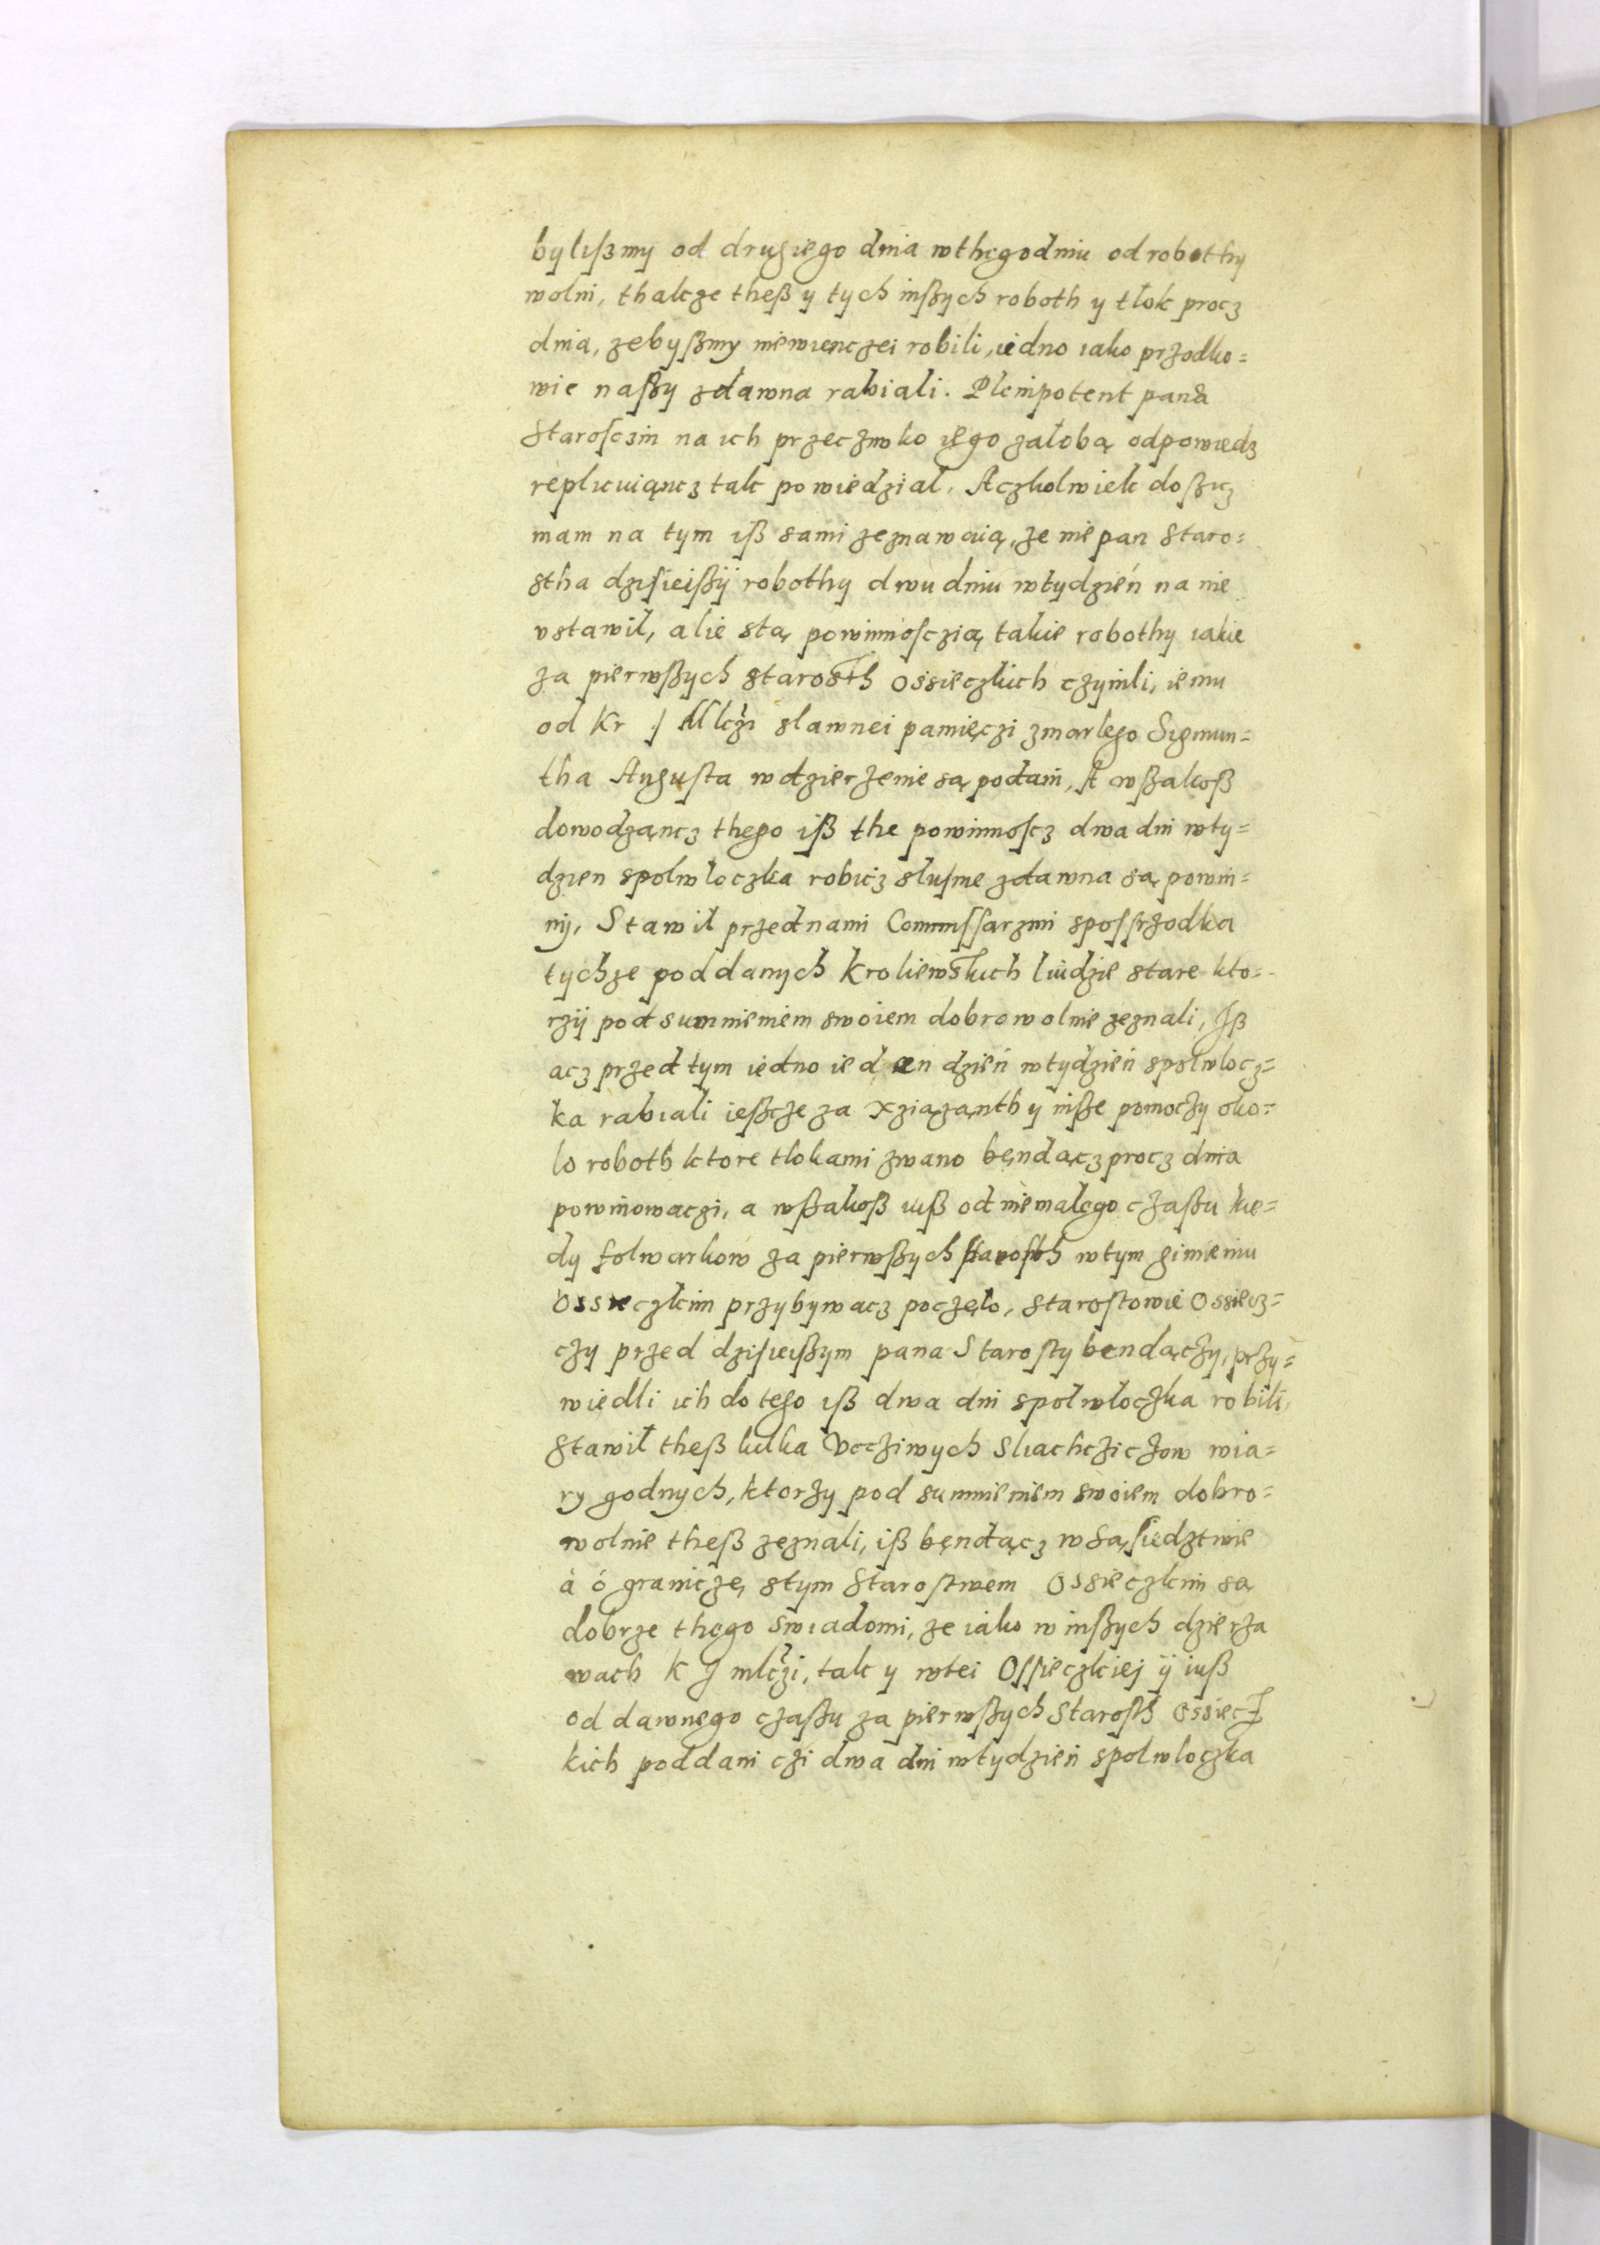 bylißmy od drugiego dnia wthęgodniu od robothy
wolni, thakże theß y tych inßych roboth y tłok procz
dnia, żebyßmy niewienczei robili, iedno iako przodko=
wie naßy zdawna rabiali. Plenipotent pana
Starosczin na ich przeczwko iego załobą odpowiedz
replicuiąncz tak powiedzial, Aczkolwiek doßicz
mam na tym iß sami zeznawaią, że nie pan staro=
stha dzisieißÿ robothy dwu dniu wtydzień na nie
vstawil, alie stą powinnosczią takie robothy iakie
za pierwßych starosth ossieczkich czynili, iemu
od Kr J Młczi slawnei pamięczi zmarlego Sigmun=
tha Augusta wdzierzenie są podani, A wßakoß
dowodząncz thego iß the powinnoscz dwa dni wty=
dzien spolwłoczka robicz słusnie zdawna są powin=
ny, Stawil przednami Commissarzmi spossrzodka
tychże poddanych Kroliewskich liudzie stare kto=
rzÿ pod sumnieniem swoiem dobrowolnie zeznali, Iß
acz przed tym iedno ieden dzień wtydzień społwłocz=
ka rabiali ießcze za Xziążąnth y inße pomoczy oko=
lo roboth ktore tlokami zwano będącz procz dnia
powinowaczi, a wßakoß iuß od niemalego czaßu kie=
dy folwarkow za pierwßych starosth wtym gimieniu
Ossieczkim przybywacz poczęło, starostowie Ossiecz=
czy przed dzisieißym pana Starosty bendączy, przy=
wiedli ich do tego iß dwa dni spolwłoczka robili,
Stawił theß kilka Vcziwych Sliachcziczow wia=
ry godnych, ktorzy pod sumnieniem swoiem dobro=
wolnie theß zeznali, iß bęndącz wsąsiedztwie
à ó granicze, stym starostwem Ossieczkim są
dobrze thego swiadomi, że iako winßych dzierża
wach K J młczi, tak y wtei Ossieczkiej ÿ iuß
od dawnego czaßu za pierwßych starosth Ossiecz
kich poddani czi dwa dni wtydzień spolwloczka